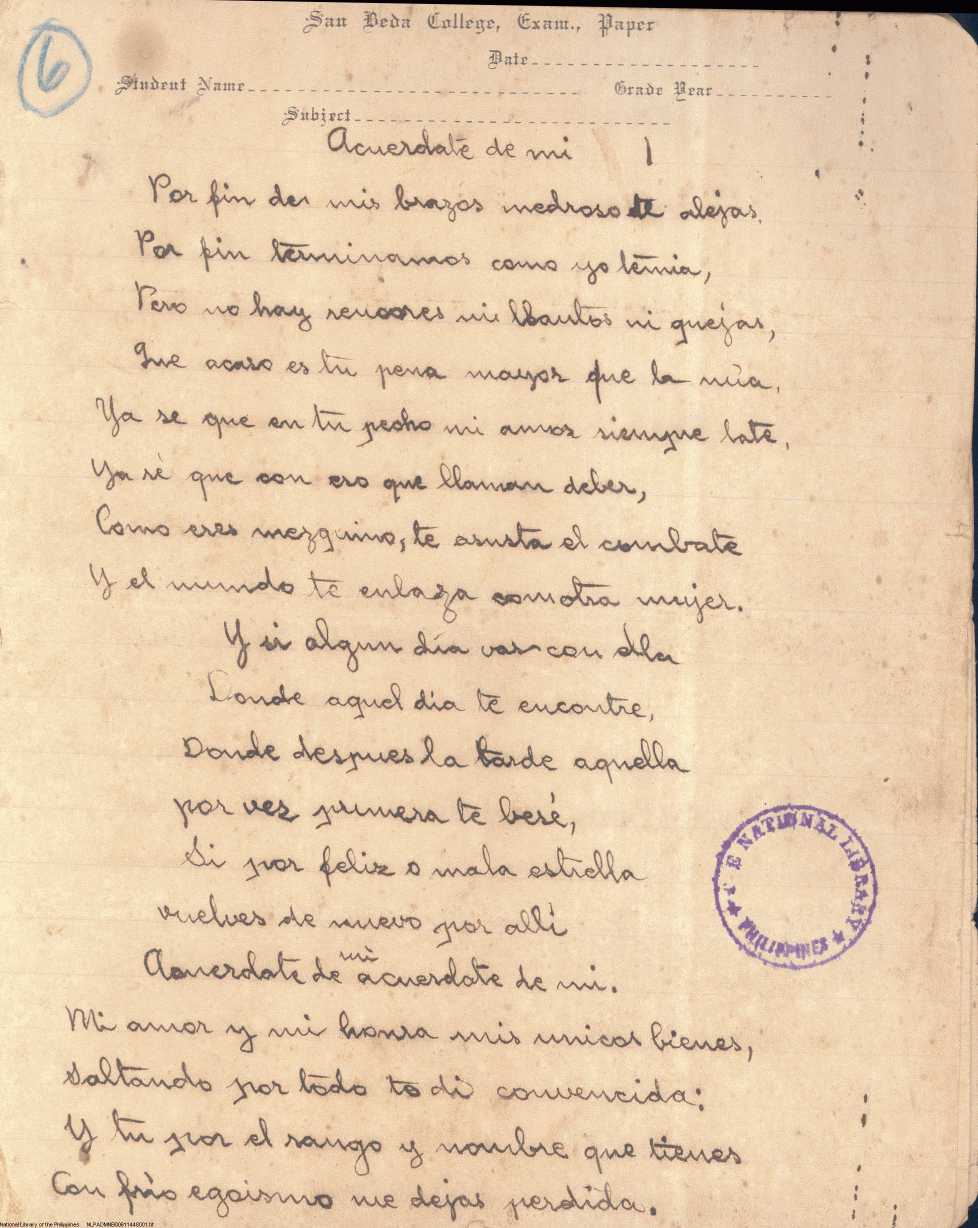 6
San Beda College, Exam., Paper
Date
Student Name Grade Year
Subject
Acuerdate de mi 1
Por fin de mis brazos medroso te alejas.
Por fin terminamos como yo temia,
Pero no hay rencores ni llantos ni quejas,
Que acaso es tu pena mayor que la mia.
Ya se que en tu pecho mi amor siempre late,
Ya sé que con eso que llaman deber,
Como eres mezquino, te asusta el combate
Y el mundo te enlaza con otra mujer.
Y si algun día vas con ella
Donde aquel dia te encontre,
Donde despues la tarde aquella
por vez primera te besé,
Si por feliz o mala estrella
vuelves de nuevo por allí
Acuerdate de mi acuerdate de mi.
Mi amor y mi honra mis unicos bienes,
Saltando por todo te di convencida:
Y tu por el rango y nombre que tienes
Con frio egoismo me dejas perdida.
THE NATIONAL LIBRARY
PHILIPPINES
National Library of the Philippines